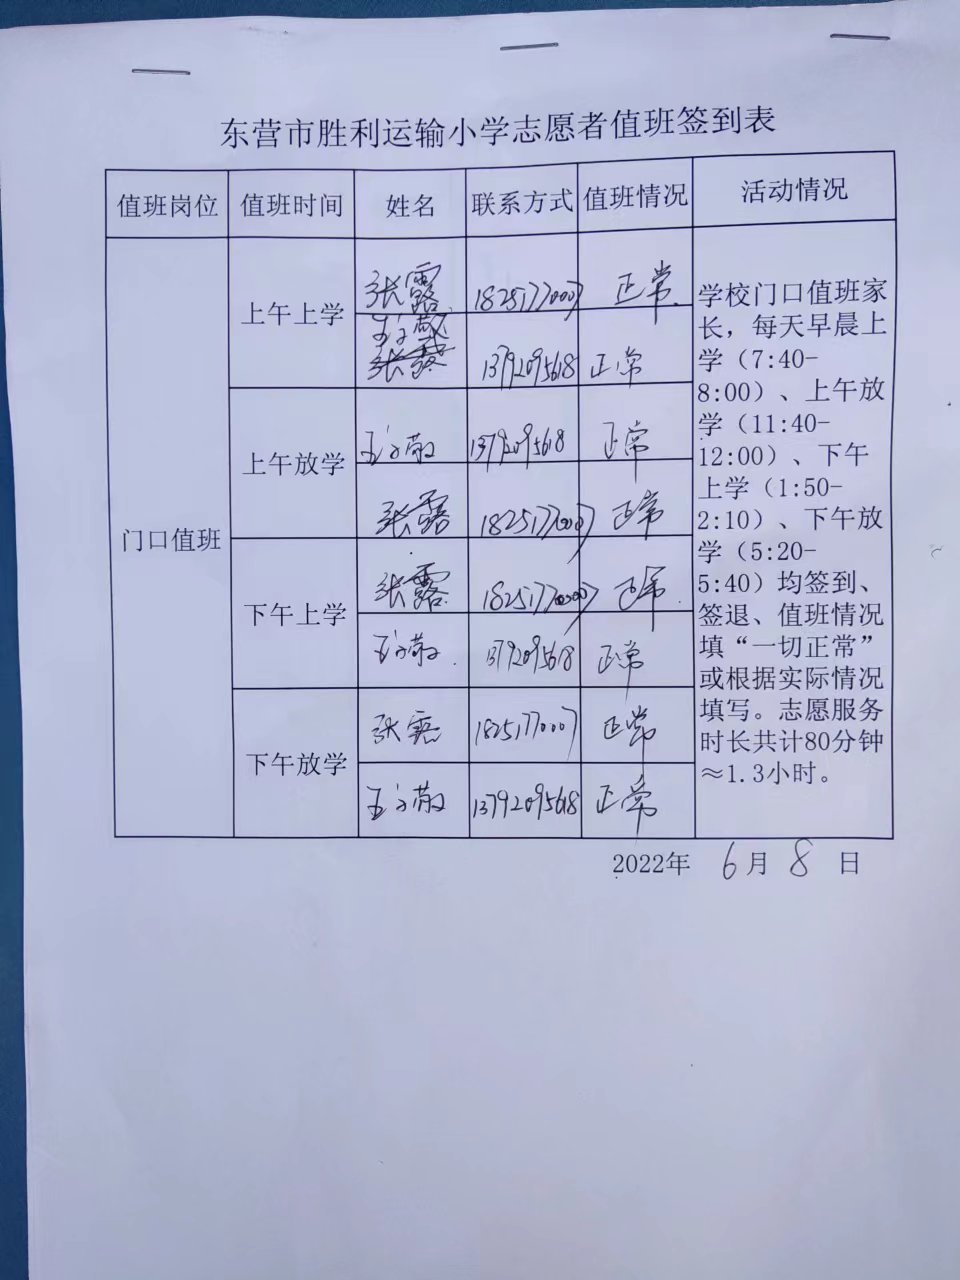 东营市胜利运输小学志愿者值班签到表
值班岗位 值班时间 姓名 联系方式 值班情况 活动情况
门口值班
上午上学
张露 18251770007 正常
13792095618 正常
上午放学
13792095618 正常
张露 18251770007 正常
下午上学
张露 18251770007 正常
13792095618 正常
下午放学
张露 18251770007 正常
13792095618 正常
学校门口值班家
长，每天早晨上
学（7:40-
8:00）、上午放
学（11:40-
12:00）、下午
上学（1:50-
2:10）、下午放
学（5:20-
5:40）均签到、
签退、值班情况
填“一切正常”
或根据实际情况
填写。志愿服务
时长共计80分钟
≈1.3小时。
2022年 6月 8 日